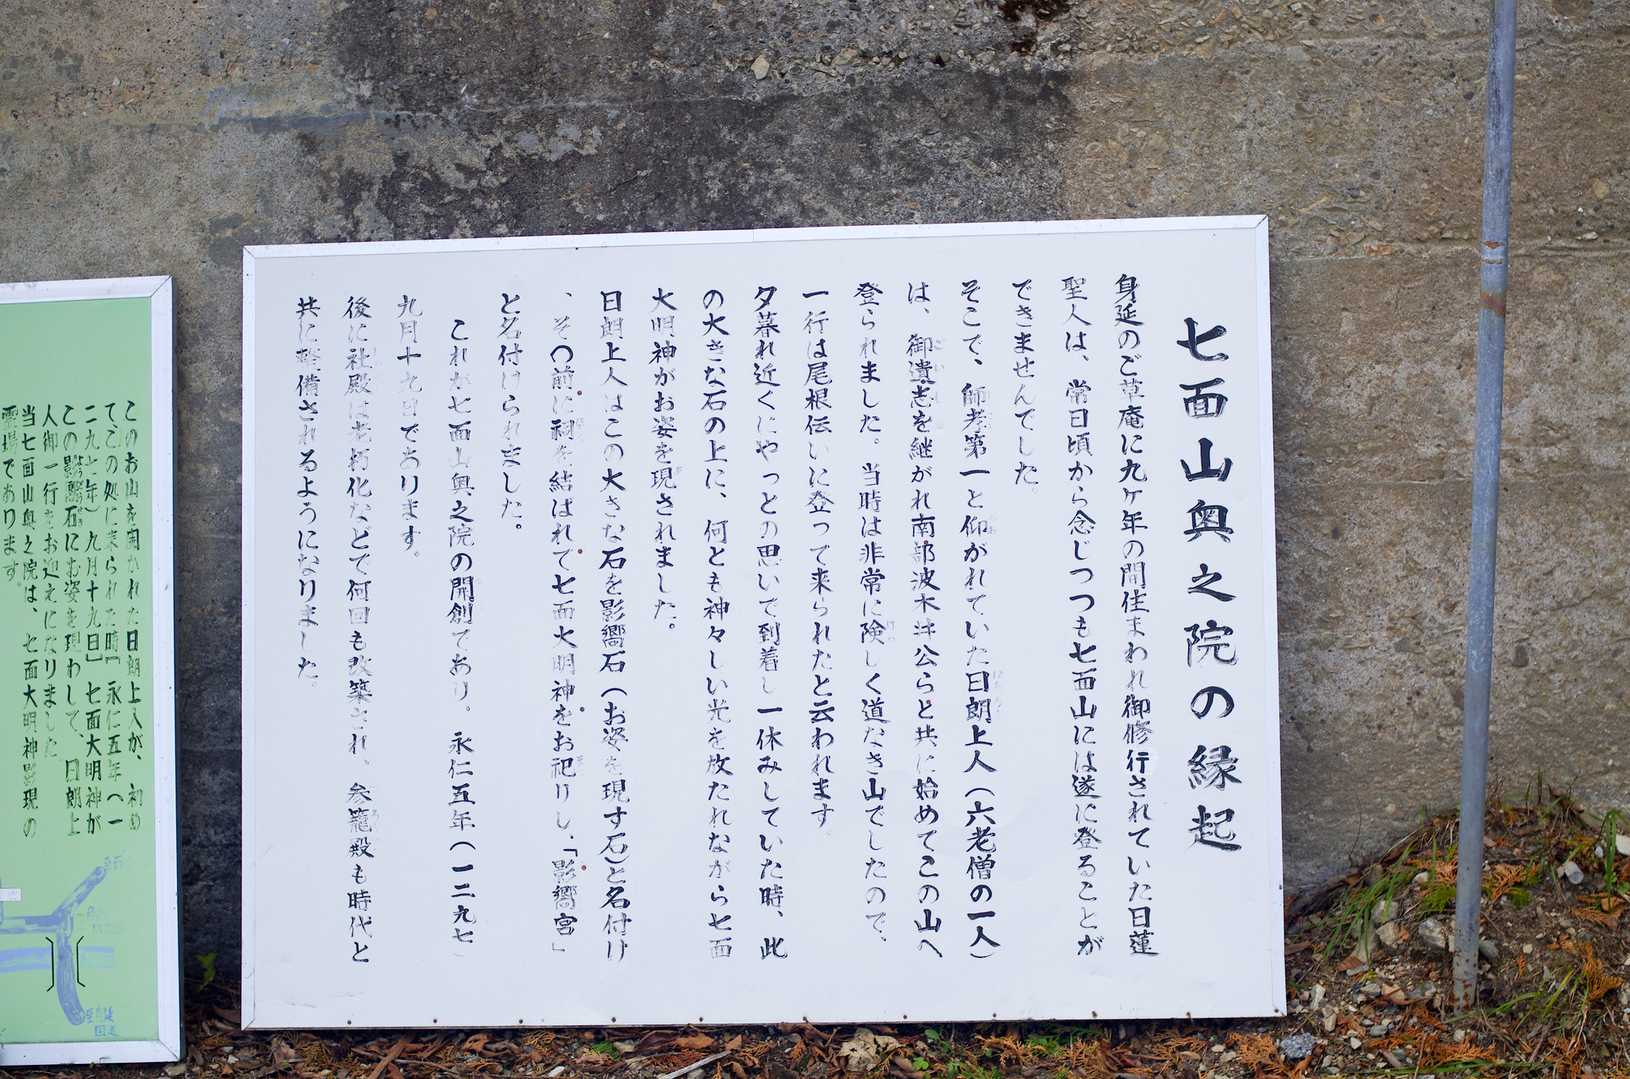 七面山奥之院の縁起
身延のご草庵に九ケ年の間住まわれ御修行されていた日蓮
聖人は、常日頃から念じつつも七面山には遂に登ることが
できませんでした。
そこで、師孝第一と仰がれていた日朗上人(六老僧の一人)
は、御遺志を継がれ南部波木井公らと共に始めてこの山へ
登られました。当時は非常に険しく道なき山でしたので、
一行は尾根伝いに登って来られたと云われます
夕暮れ近くにやっとの思いで到着し一休みしていた時、此
の大きな石の上に、何とも神々しい光を放たれながら七面
大明神がお姿を現されました。
日朗上人はこの大きな石を影嚮石(お姿を現す石)と名付け
、その前に祠を結ばれて七面大明神をお祀りし、「影嚮宮」
と名付けられました。
これが七面山奥之院の開創であり。永仁五年(一二九七)
九月十九日であります。
後に社殿は老朽化などで何回も改築され、参籠殿も時代と
共に整備されるようになりました。
このお山を開かれた日朗上人が、初め
てこの処に来られた時『永仁五年(一
二九七年)九月十九日』七面大明神が
この影嚮石にお姿を現わして、日朗上
人御一行をお迎えになりました
当七面山奥之院は、七面大明神影現の
霊場であります